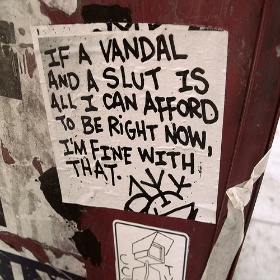 IF A VANDAL
AND A SLUT IS
ALL I CAN AFFORD
TO BE RIGHT NOW,
I'M FINE WITH
THAT.